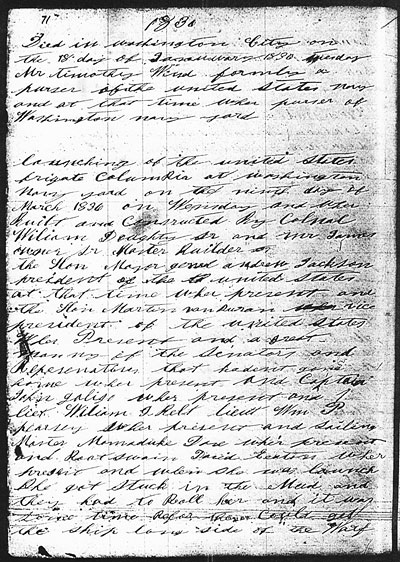 71 1836
Died in washington City on
the 18 day of Januwary 1836
Mr timothey Wind formly a
purser of the united states navy
and at that time wher purser of
Washington navy yard
Launching of the united states
frigate Columbia at washington
Navy yard on the ninth day of
March 1836 on Wensday and wher
Built and Constructed By Colnal
Wiliam Doughty Sr and mr James
owner Sr Master Builder
the Hon Major genral andrew Jackson
president of the united states
at that time wher present and
the Hon Marten van Buran vice
president of the united states
wher Present and a great
manny of the Senators and
Representatives that hadent gone
home wher present and Captain
John galiso wher present and
liet. Wiliam J. Belt lieut Wm P
piearsey wher present and sailing
Master Mamaduke Dove wher present
and Boatswain David Eaton wher
present and when She was launch
She got stuck in the Mud and
they had to Ball her and it was
some time Befor they Could get
the ship long side of the Warf